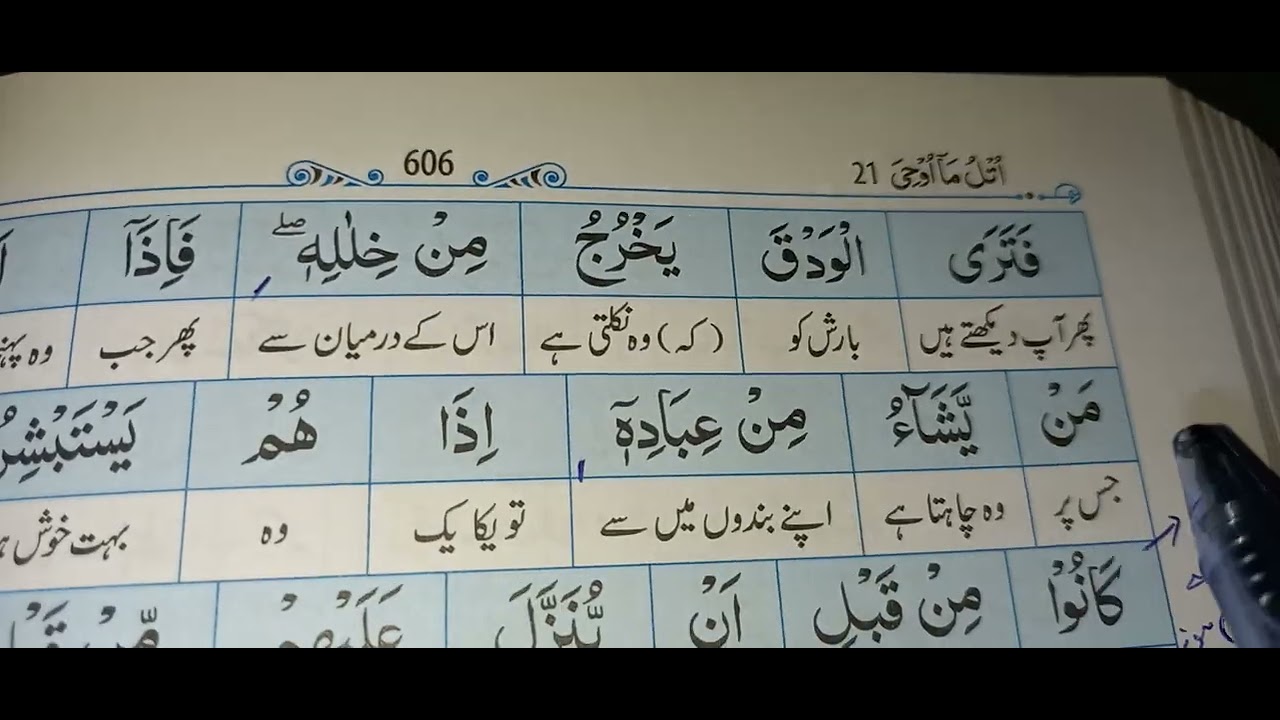 اُتْلُ مَآ اُوْحِیَ 21 606
فَتَرَی الْوَدْقَ یَخْرُجُ مِنْ خِلٰلِهٖ ۚۖ فَاِذَاۤ
پھر آپ دیکھتے ہیں بارش کو (کہ) وہ نکلتی ہے اس کے درمیان سے پھر جب وہ
مَنْ یَّشَآءُ مِنْ عِبَادِهٖۤ اِذَا هُمْ
جس پر وہ چاہتا ہے اپنے بندوں میں سے تو یکا یک وہ بہت خوش
كَانُوْا مِنْ قَبْلِ اَنْ یُّنَزَّلَ عَلَیْهِمْ